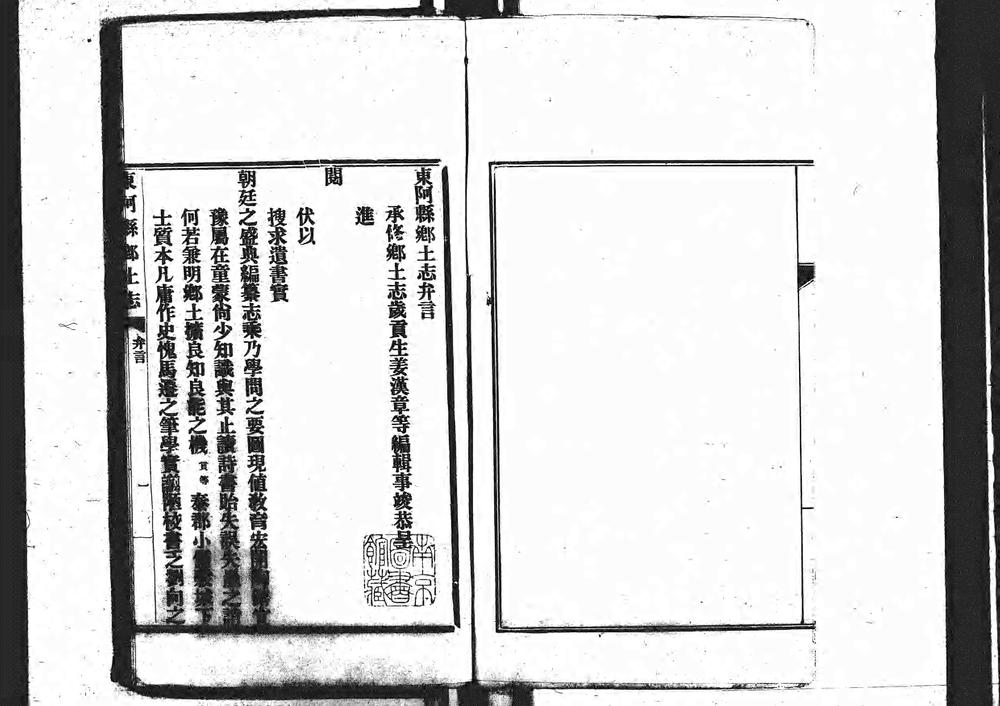 東阿縣鄉土志弁言
承修鄉土志歲貢生姜漢章等編輯事竣恭呈
進
閱
伏以
搜求遺書實
朝廷之盛典編纂志乘乃學問之要圖現値教育宏開
豫屬在童蒙尙少知識與其止讀詩書貽失誤失愚之誚
何若兼明鄉土擴良知良能之機貢等秦郡小儒
士質本凡庸作史愧馬遷之筆學實謭陋校書之劉向之
東阿縣鄉土志
弁言
一
南京圖書館藏